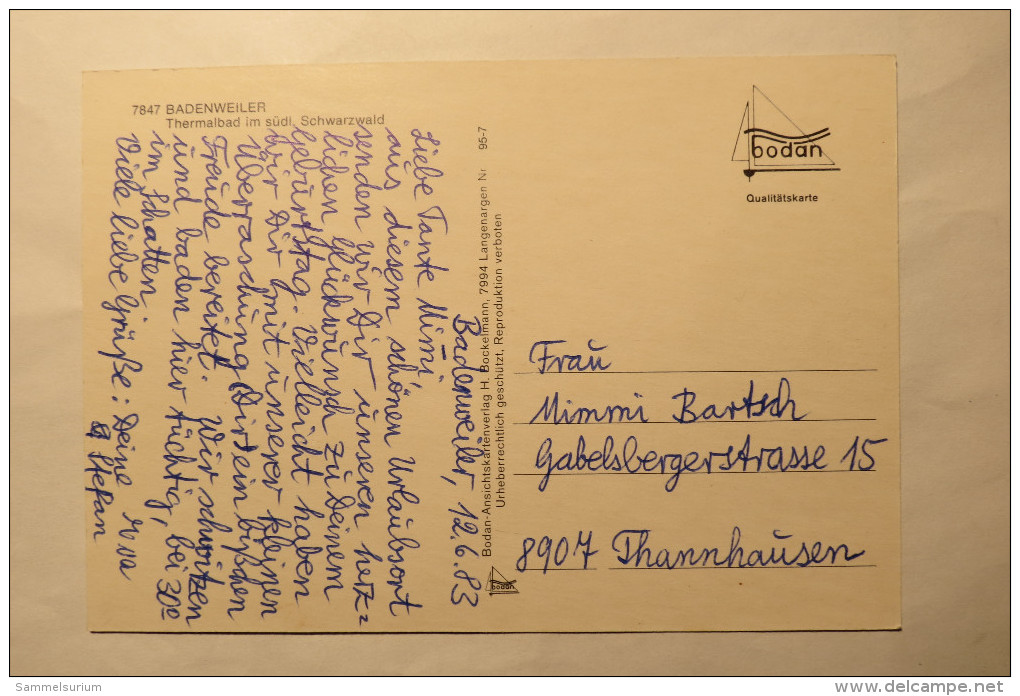 7847 BADENWEILER
Thermalbad im südl. Schwarzwald
Badenweiler, 12.6.83
Liebe Tante Mimi,
aus diesem schönen Urlaubsort
senden wir Dir unseren herz=
lichen Glückwunsch zu Deinem
Geburtstag. Vielleicht haben
wir Dir mit unserer kleinen
Überraschung Dir ein bißchen
Freude bereitet. Wir schwitzen
und baden hier tüchtig, bei 30°
im Schatten.
Viele liebe Grüße: Deine
Stefan
Bodan-Ansichtskartenverlag H. Bockelmann, 7994 Langenargen Nr 95-7
Urheberrechtlich geschützt, Reproduktion verboten
bodan
bodan
Qualitätskarte
Frau
Mimmi Bartsch
Gabelsbergerstrasse 15
8907 Thannhausen
Sammelsurium
www.delcampe.net